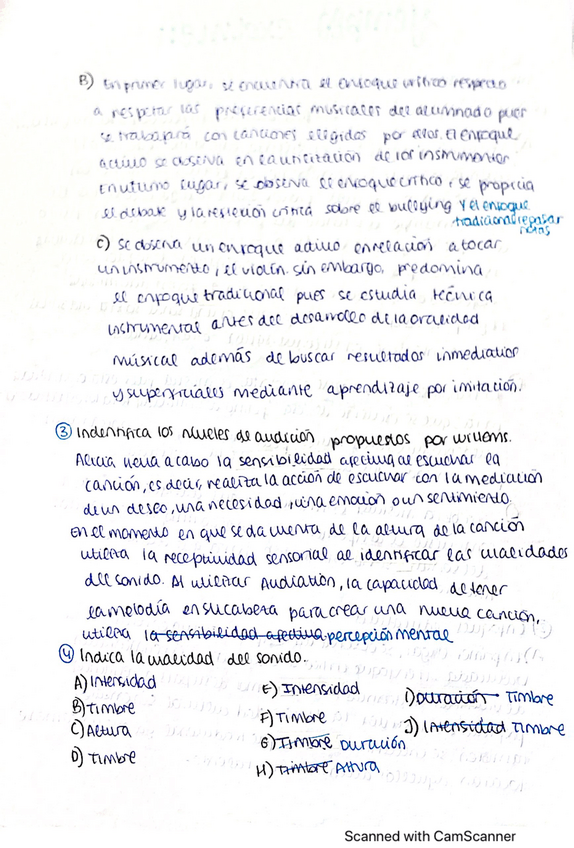 B) En primer lugar, se encuentra el enfoque crítico respecto
a respetar las preferencias musicales del alumnado pues
se trabajará con canciones elegidas por ellos. El enfoque
activo se observa en la utilización de los instrumentos
En último lugar, se observa el enfoque crítico, se propicia
el debate y la reflexión crítica sobre el bullying y el enfoque
tradicional repasar
notas
c) Se observa un enfoque activo en relación a tocar
un instrumento, el violín. Sin embargo, predomina
el enfoque tradicional pues se estudia técnica
instrumental antes del desarrollo de la oralidad
musical además de buscar resultados inmediatos
y superficiales mediante aprendizaje por imitación.
③ Indentifica los niveles de audición propuestos por Willems.
Alicia lleva a cabo la sensibilidad afectiva al escuchar la
canción, es decir, realiza la acción de escuchar con la mediación
de un deseo, una necesidad, una emoción o un sentimiento.
En el momento en que se da cuenta de la altura de la canción
utiliza la receptividad sensorial al identificar las cualidades
del sonido. Al utilizar Audiation, la capacidad de tener
la melodía en su cabeza para crear una nueva canción,
utiliza la sensibilidad afectiva percepción mental
④ Indica la cualidad del sonido.
A) Intensidad
B) Timbre
C) Altura
D) Timbre
E) Intensidad
F) Timbre
G) Timbre Duración
H) Timbre Altura
I) Duración Timbre
J) Intensidad Timbre
Scanned with CamScanner